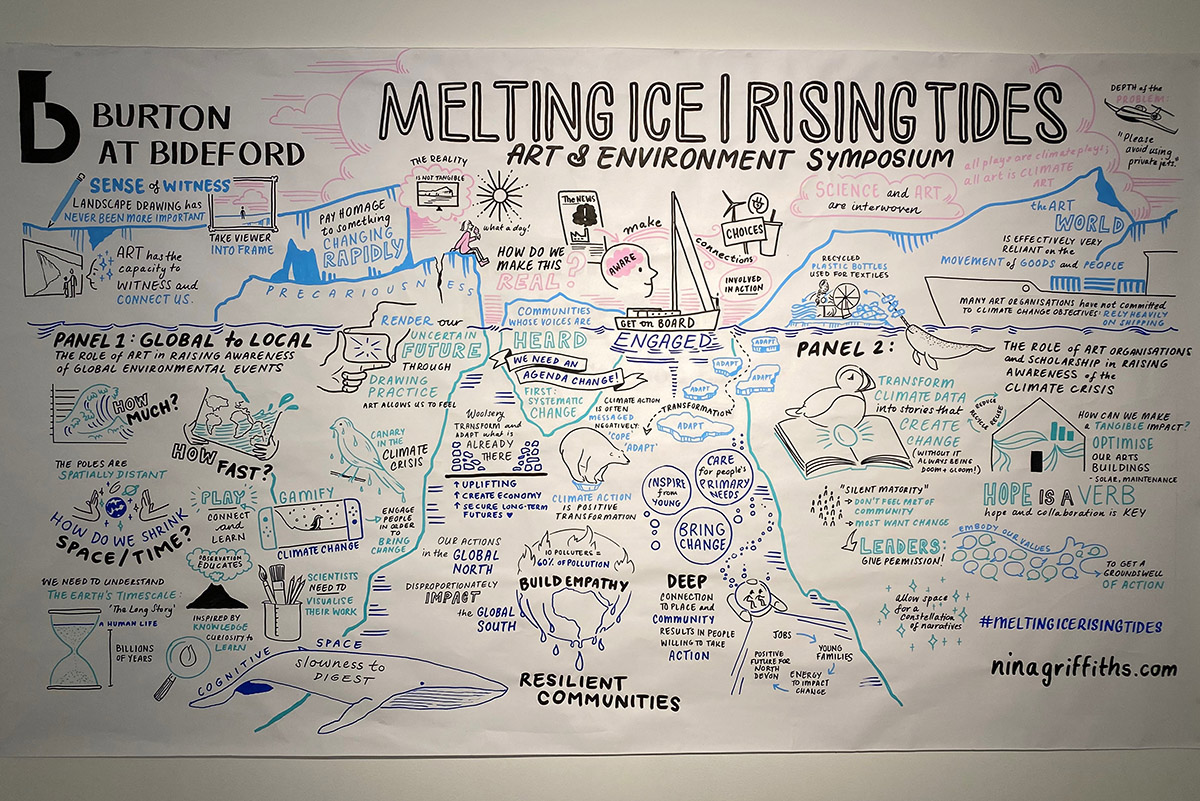 b
BURTON
AT BIDEFORD
MELTING ICE | RISING TIDES
ART & ENVIRONMENT SYMPOSIUM
DEPTH of the
PROBLEM:
"Please
avoid using
private jets."
SENSE of WITNESS
LANDSCAPE DRAWING has
NEVER BEEN MORE IMPORTANT
TAKE VIEWER
INTO FRAME
ART has the
capacity to
WITNESS and
CONNECT US.
PAY HOMAGE
to something
CHANGING
RAPIDLY
PRECARIOUSNESS
THE REALITY
IS NOT TANGIBLE
what a day!
HOW DO WE
MAKE THIS
REAL?
The NEWS
make
AWARE
connections
CHOICES
INVOLVED
IN ACTION
GET on BOARD
ENGAGED
all plays are climate plays;
all art is CLIMATE
ART
SCIENCE and ART
are interwoven
the ART
WORLD
IS EFFECTIVELY VERY
RELIANT on the
MOVEMENT of GOODS and PEOPLE
RECYCLED
PLASTIC BOTTLES
USED FOR TEXTILES
MANY ART ORGANISATIONS have not COMMITTED
TO CLIMATE CHANGE OBJECTIVES: RELY HEAVILY
ON SHIPPING
PANEL 1: GLOBAL to LOCAL
THE ROLE OF ART IN RAISING AWARENESS
OF GLOBAL ENVIRONMENTAL EVENTS
HOW
MUCH?
HOW FAST?
RENDER our
UNCERTAIN
FUTURE
THROUGH
DRAWING
PRACTICE
ART ALLOWS US TO FEEL
CANARY
IN THE
CLIMATE
CRISIS
THE POLES ARE
SPATIALLY DISTANT
HOW DO WE SHRINK
SPACE/TIME?
PLAY
CONNECT
and
LEARN
GAMIFY
CLIMATE CHANGE
ENGAGE
PEOPLE
IN ORDER
to
BRING
CHANGE
WE NEED TO UNDERSTAND
THE EARTH'S TIMESCALE:
'The Long Story'
A HUMAN LIFE
BILLIONS
OF YEARS
OBSERVATION
EDUCATES
INSPIRED BY
KNOWLEDGE
CURIOSITY to
LEARN
SCIENTISTS
NEED to
VISUALISE
THEIR WORK
COGNITIVE SPACE
slowness to
DIGEST
COMMUNITIES
WHOSE VOICES ARE
HEARD
WE NEED AN
AGENDA CHANGE!
FIRST:
SYSTEMATIC
CHANGE
Woolsery
TRANSFORM and
ADAPT what is
ALREADY
THERE
↑ UPLIFTING
↑ CREATE ECONOMY
↑ SECURE LONG-TERM
FUTURES ♥
CLIMATE ACTION
IS OFTEN
MESSAGED
NEGATIVELY:
'COPE'
'ADAPT'
CLIMATE ACTION
IS POSITIVE
TRANSFORMATION
ADAPT
ADAPT
ADAPT
ADAPT
TRANSFORMATION
ADAPT
INSPIRE
from
YOUNG
CARE
for people's
PRIMARY
NEEDS
BRING
CHANGE
OUR ACTIONS
in the GLOBAL
NORTH
DISPROPORTIONATELY
IMPACT
the GLOBAL
SOUTH
10 POLLUTERS =
60% OF POLLUTION
BUILD EMPATHY
RESILIENT
COMMUNITIES
DEEP
CONNECTION
TO PLACE and
COMMUNITY
RESULTS IN PEOPLE
WILLING TO TAKE
ACTION
JOBS
YOUNG
FAMILIES
ENERGY
TO IMPACT
CHANGE
POSITIVE
FUTURE FOR
NORTH
DEVON
PANEL 2:
THE ROLE OF ART ORGANISATIONS
and SCHOLARSHIP in RAISING
AWARENESS of the
CLIMATE CRISIS
TRANSFORM
CLIMATE DATA
into stories that
CREATE
CHANGE
(WITHOUT IT
ALWAYS BEING
DOOM & GLOOM!)
REDUCE
REUSE
RECYCLE
HOW CAN WE MAKE
a TANGIBLE IMPACT?
OPTIMISE
OUR ARTS
BUILDINGS
- SOLAR, MAINTENANCE
"SILENT MAJORITY"
→ DON'T FEEL PART OF
COMMUNITY
→ MOST WANT CHANGE
LEADERS:
GIVE PERMISSION!
HOPE IS A VERB
hope and collaboration is KEY
EMBODY OUR VALUES
TO GET a
GROUNDSWELL
OF ACTION
allow space
for a
constellation
of narratives
#MELTINGICERISINGTIDES
ninagriffiths.com